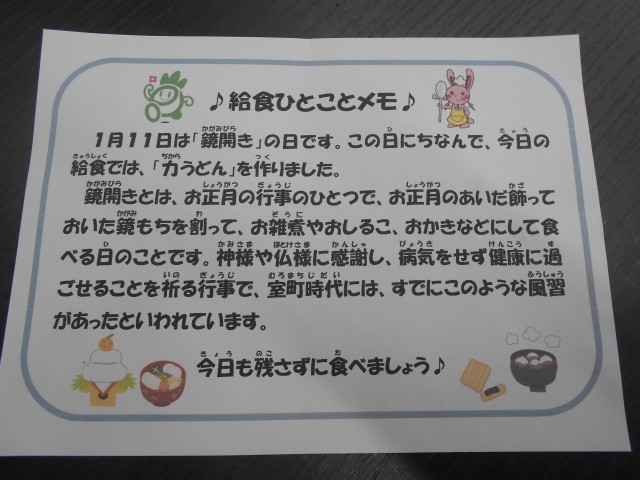 ♪給食ひとことメモ♪
1月11日は「鏡開き」の日です。この日にちなんで、今日の
給食では、「力うどん」を作りました。
鏡開きとは、お正月の行事のひとつで、お正月のあいだ飾って
おいた鏡もちを割って、お雑煮やおしるこ、おかきなどにして食
べる日のことです。神様や仏様に感謝し、病気をせず健康に過
ごせることを祈る行事で、室町時代には、すでにこのような風習
があったといわれています。
今日も残さずに食べましょう♪